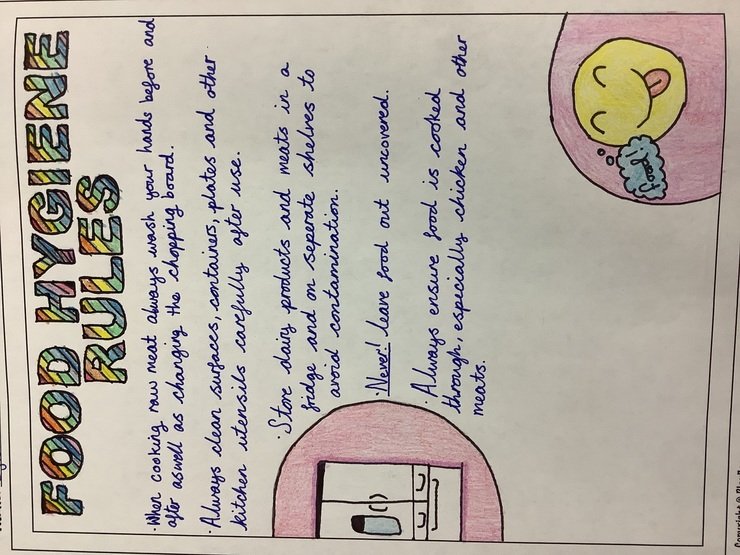 FOOD HYGIENE
RULES
· When cooking raw meat always wash your hands before and
after aswell as changing the chopping board.
· Always clean surfaces, containers, plates and other
kitchen utensils carefully after use.
· Store dairy products and meats in a
fidge and on seperate shelves to
avoid contamination.
· Never! leave food out uncovered.
· Always ensure food is cooked
through, especially chicken and other
meats.
food!